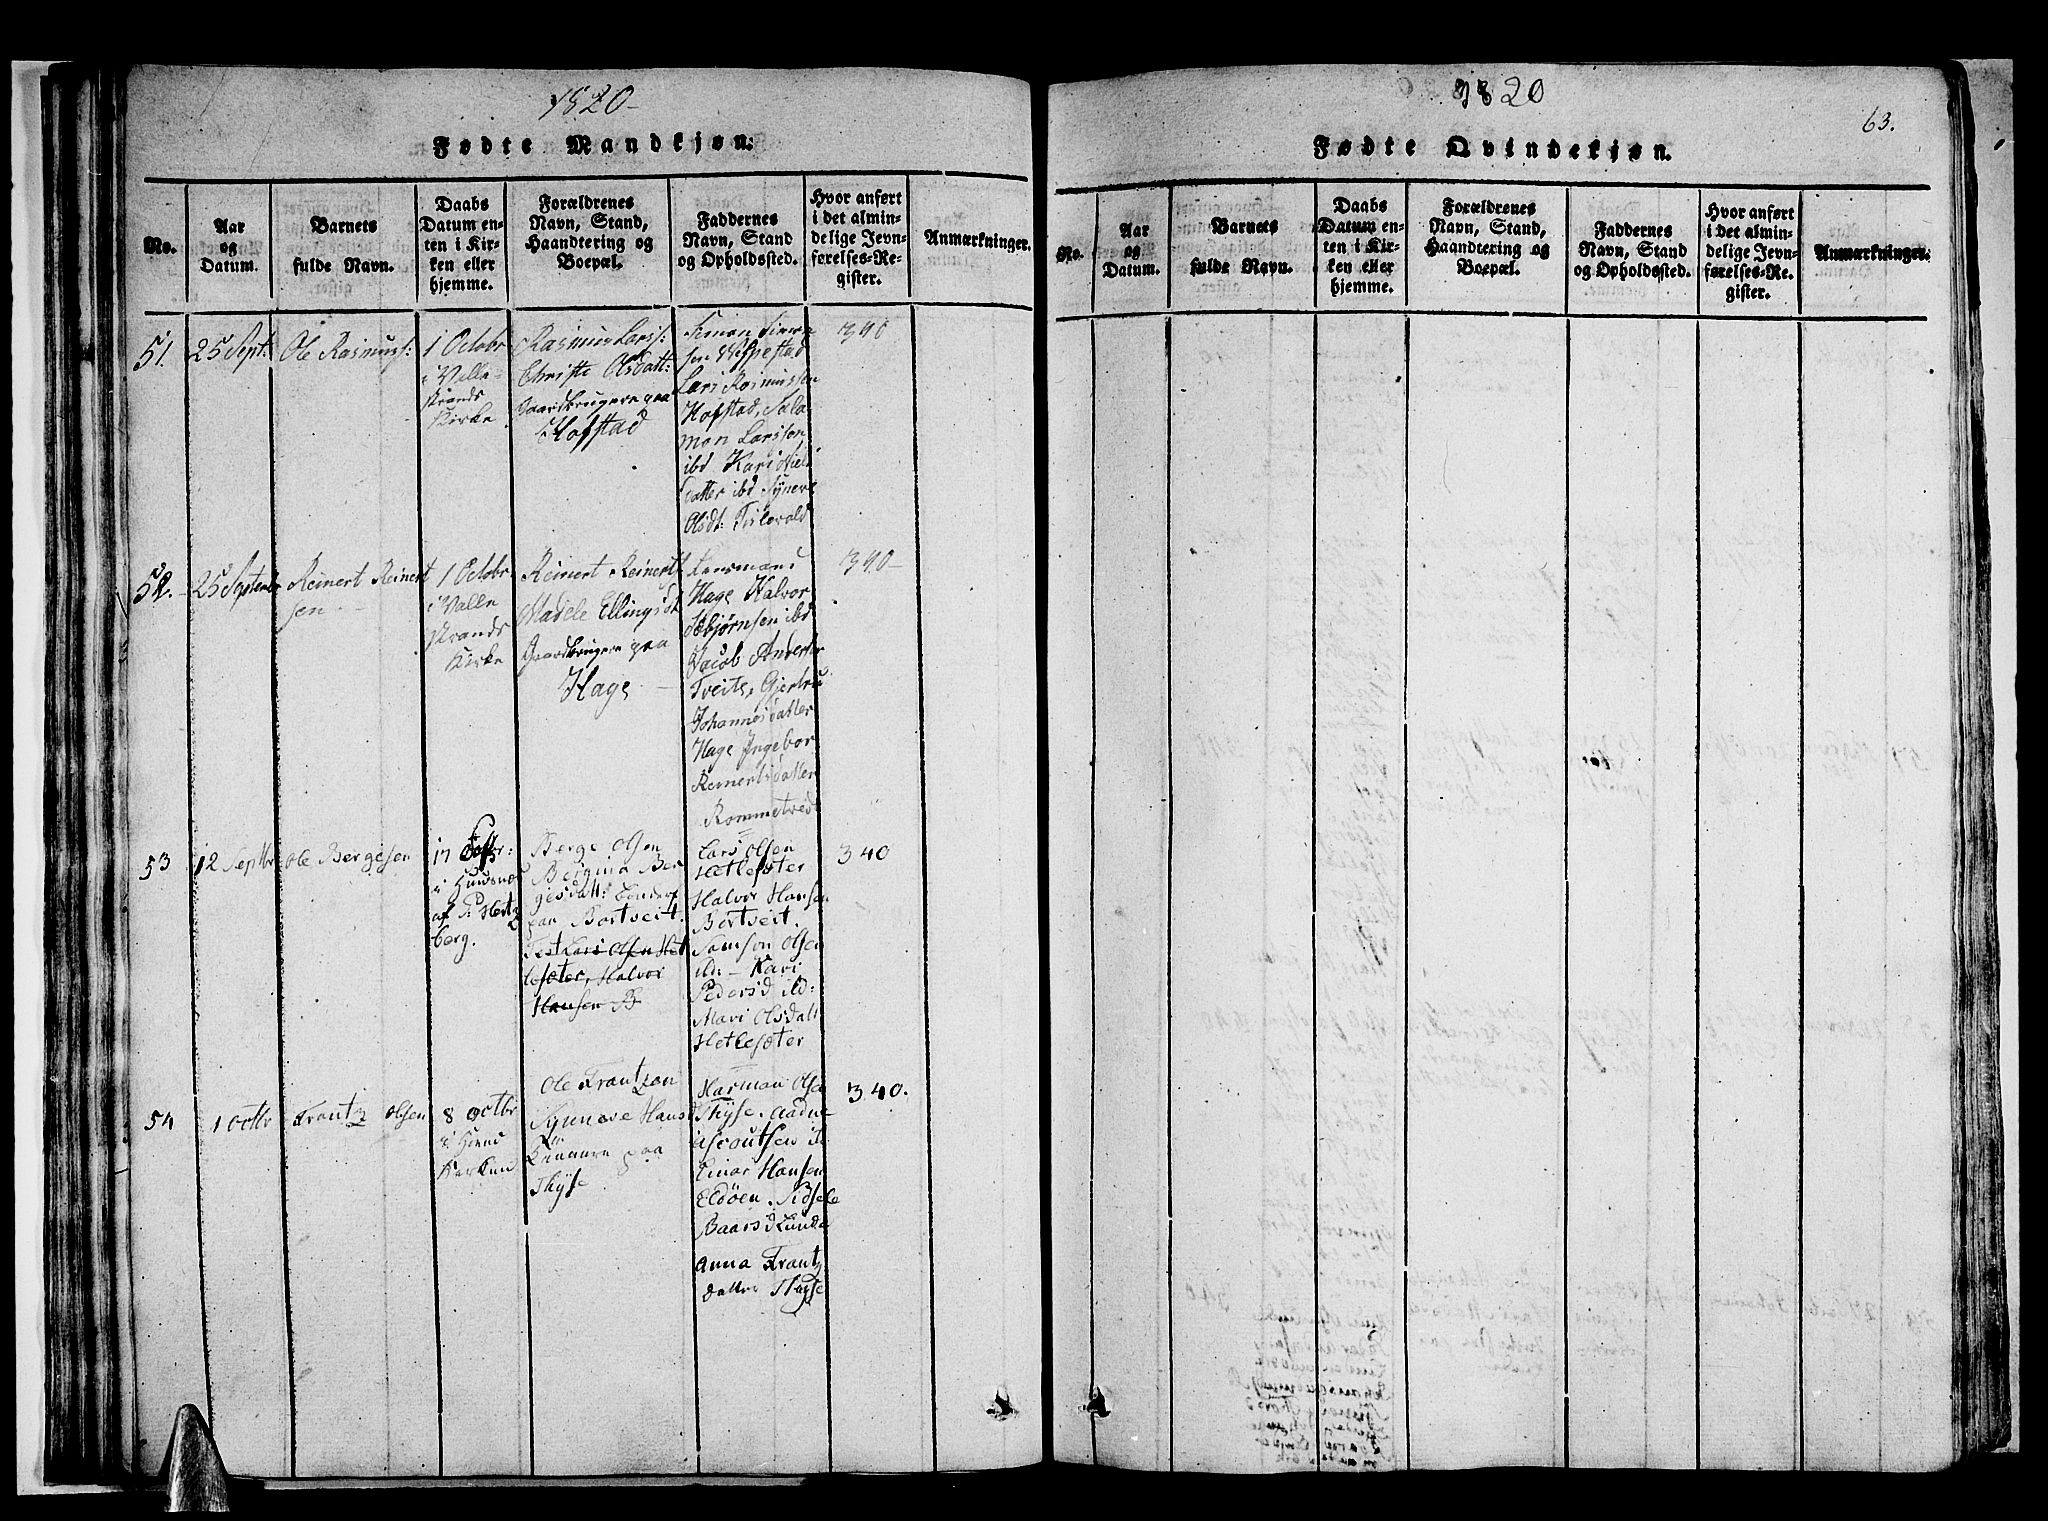 1820
Fødte Mandkjøn.
No.
Aar
og
Datum.
Barnets
fulde Navn.
Daabs
Datum en-
ten i Kir-
ken eller
hjemme.
Forældrenes
Navn, Stand,
Haandtering og
Boepæl.
Faddernes
Navn, Stand
og Opholdssted.
Hvor anført
i det almin-
delige Jevn-
førelses-Re-
gister.
Anmærkninger.
51.
25 Sept:
Ole Rasmuss:
1 Octobr
i Valle-
strands
Kirke
Rasmus Larss:
Christi Olsdatt:
Gaardbrugere paa
Hofstad
Simon Simon
sen
Lars Rasmussen
Hofstad, Salo-
mon Larssen
ibd Kari Niels
datter ibd Syneve
Olsdt:
340
52.
25 September
Reinert Reinert
sen.
1 Octobr
i Valle
strands
Kirke
Reinert Reinerts
Madele Ellingsdt
Gaardbrugere paa
Hage
Hage Halvor
Asbjørnsen ibd
Jacob Anderser
Tveite, Gjertru
Johannesdatter
Hage Ingebor
Reinertsdatter
Rommetved
340
53
12 Septbr
Ole Bergesen
17
i
af P. Hertz
berg.
Berge Olsen
Bergina Ber
gesdatt: Bønder
paa Bortveit.
Test Lars Olsen Het
lesæter, Halvor
Hansen B
Lars Olsen
Hetlesæter
Halvor Hansen
Bortveit.
Samson Olsen
ibd: Kari
Pedersd ibd:
Mari Olsdatt
Hetlesæter
340
54
1 Octbr
Frantz Olsen
8 Octbr
i
Kirken
Ole Frantzon
Synneve Hansd
paa
Thyse
Harman Olsen
Thyse. Aadne
Einar Hansen
Eldøen. Sidsele
Baarsd Lunde
Anna Frantz
datter Thyse
340.
1820
63.
Fødte Qvindekjøn.
No.
Aar
og
Datum.
Barnets
fulde Navn.
Daabs
Datum en-
ten i Kir-
ken eller
hjemme.
Forældrenes
Navn, Stand,
Haandtering og
Boepæl.
Faddernes
Navn, Stand
og Opholdssted.
Hvor anført
i det almin-
delige Jevn-
førelses-Re-
gister.
Anmærkninger.